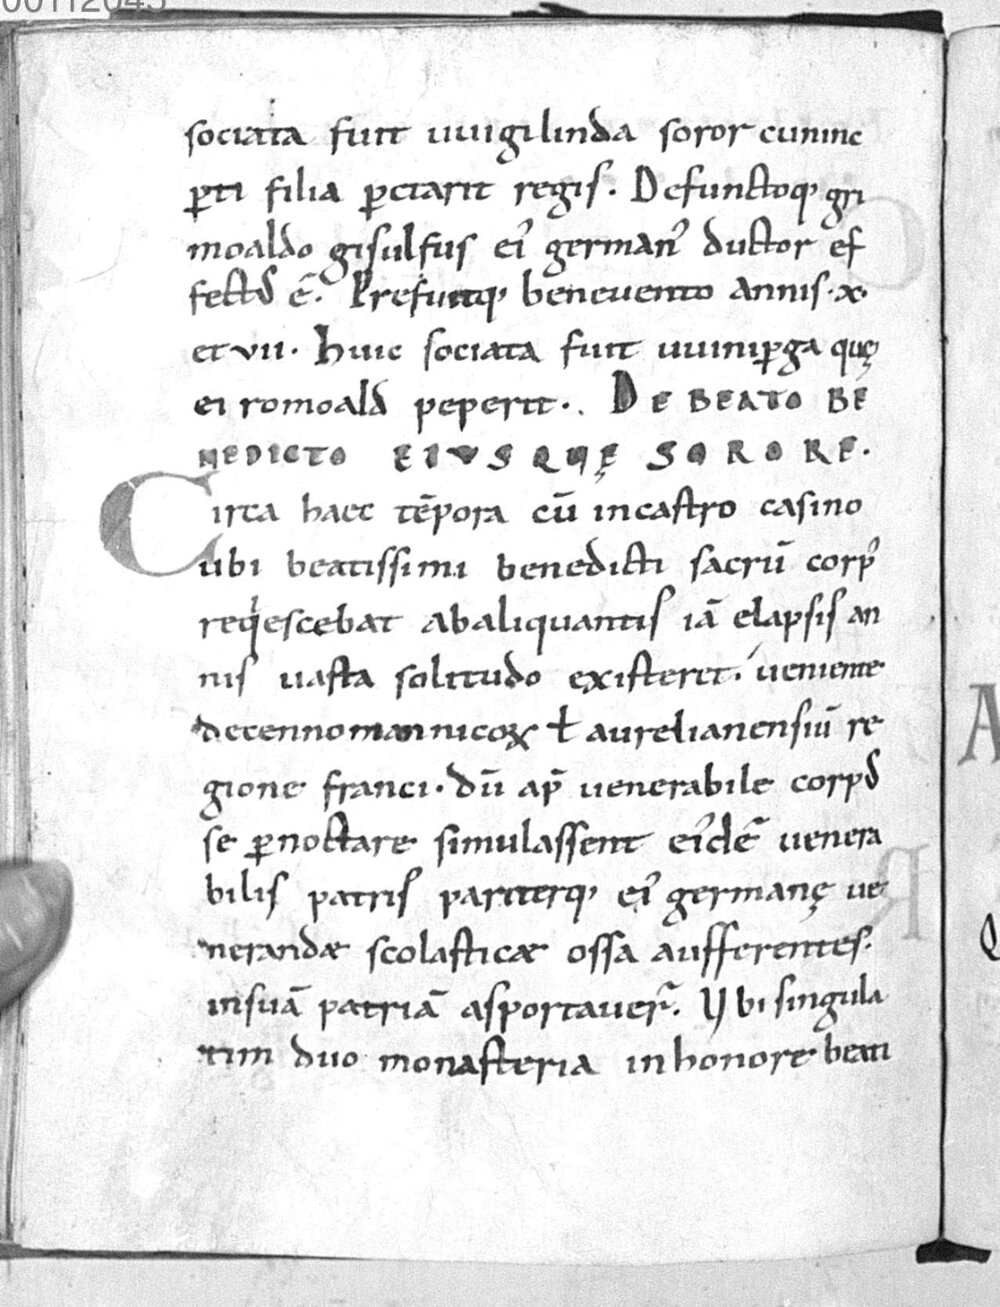 sociata fuit uuigilinda soror cuninc
ꝑti filia ꝑctarit regis. Defunctoq; gri
moaldo gisulfus ei᾽ german᾽ ductor ef
fect᾽ ē. Prefuitq; beneuento annis·x·
et vii. Huic sociata fuit uuiniꝑga quę
ei romoald peperit. DE BEATO BE
NEDICTO EIUSQUĘ SORORE.
Circa haec tēpora cū incastro casino
ubi beatissimi benedicti sacrū corp᾽
reqiescebat abaliquantis iā elapsis an
nis uasta solitudo existeret. ueniente
decennomannicoꝝ ł aurelianensiū re
gione franci. dū ap̄ uenerabile corp᾽
se ꝑnoctare simulassent ei᾽dē uenera
bilis patris pariterq; ei᾽ germanę ue
nerandæ scolasticæ ossa aufferentes.
insuā patriā asportauer̄. Ubi singula
tim duo monasteria inhonore beati